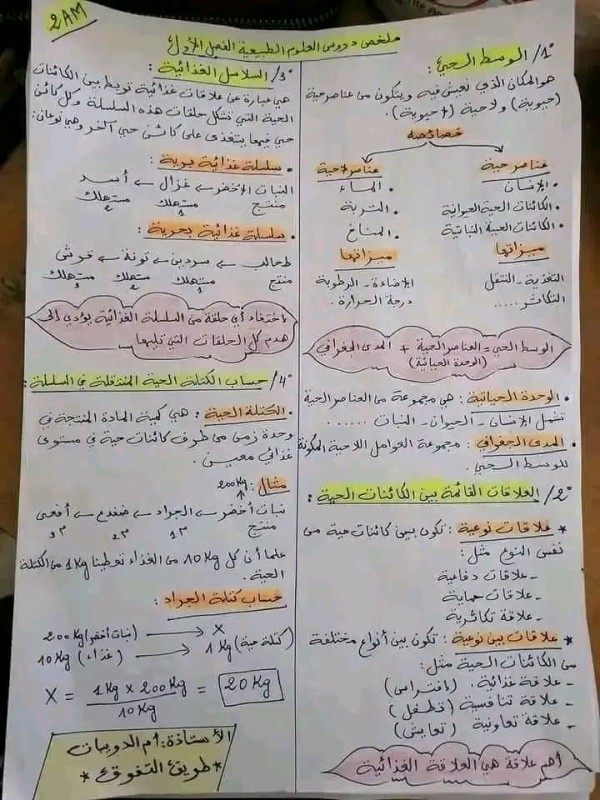 2AM
ملخص دروس العلوم الطبيعية الفصل الأول
1°/ الوسط الحي :
هو المكان الذي نعيش فيه ويتكون من عناصر حية
(حيوية) ولا حية (لا حيوية).
خصائصه
عناصر حية
عناصر لا حية
• الإنسان
• الماء
• الكائنات الحية الحيوانية
• التربة
• الكائنات الحية النباتية
• المناخ
ميزاتها
ميزاتها
التغذية - التنقل
الإضاءة - الرطوبة
التكاثر .....
درجة الحرارة.
الوسط الحي = العناصر الحية + المدى الجغرافي
(الوحدة الحياتية)
• الوحدة الحياتية : هي مجموعة من العناصر الحية
تشمل الإنسان - الحيوان - النبات ......
• المدى الجغرافي : مجموعة العوامل اللاحية المكونة
للوسط الحي.
2°/ العلاقات القائمة بين الكائنات الحية :
* علاقات نوعية : تكون بين كائنات حية من
نفس النوع مثل :
- علاقات دفاعية
- علاقات حماية
- علاقة تكاثرية
* علاقات بين نوعية : تكون بين أنواع مختلفة
من الكائنات الحية مثل :
- علاقة غذائية : (افتراس)
- علاقة تنافسية (تطفل)
- علاقة تعاونية (تعايش)
أهم علاقة هي العلاقة الغذائية
3°/ السلاسل الغذائية :
هي عبارة عن علاقات غذائية تربط بين الكائنات
الحية التي تشكل حلقات هذه السلسلة وكل كائن
حي فيها يتغذى على كائن حي آخر وهي نوعان:
• سلسلة غذائية برية :
النبات الأخضر ← غزال ← أسد
منتج مستهلك1 مستهلك2
• سلسلة غذائية بحرية :
طحالب ← سردين ← تونة ← قرش
منتج مستهلك1 مستهلك2 مستهلك3
اختفاء أي حلقة من السلسلة الغذائية يؤدي إلى
هدم كل الحلقات التي تليها
4°/ حساب الكتلة الحية المتنقلة في السلسلة :
• الكتلة الحية : هي كمية المادة المنتجة في
وحدة زمن من طرف كائنات حية في مستوى
غذائي معين.
مثال : 200Kg
نبات أخضر ← الجراد ← ضفدع ← أفعى
منتج م1 م2 م3
علما أن كل 10Kg من الغذاء تعطينا 1Kg من الكتلة
الحية.
حساب كتلة الجراد :
200Kg (نبات أخضر) → X
10Kg (غذاء) → 1Kg (كتلة حية)
X = 1Kg x 200Kg / 10Kg = 20Kg
الأستاذة: أم الدوبيان
* طريق التفوق *